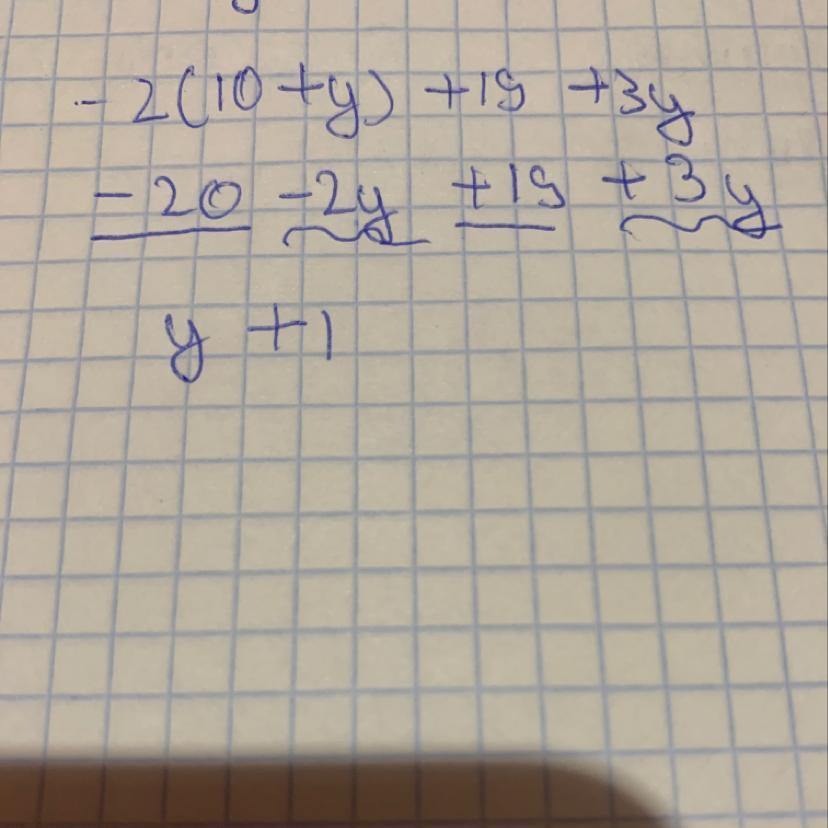 -2(10+y) +19 +3y
-20 -2y +19 +3y
y +1